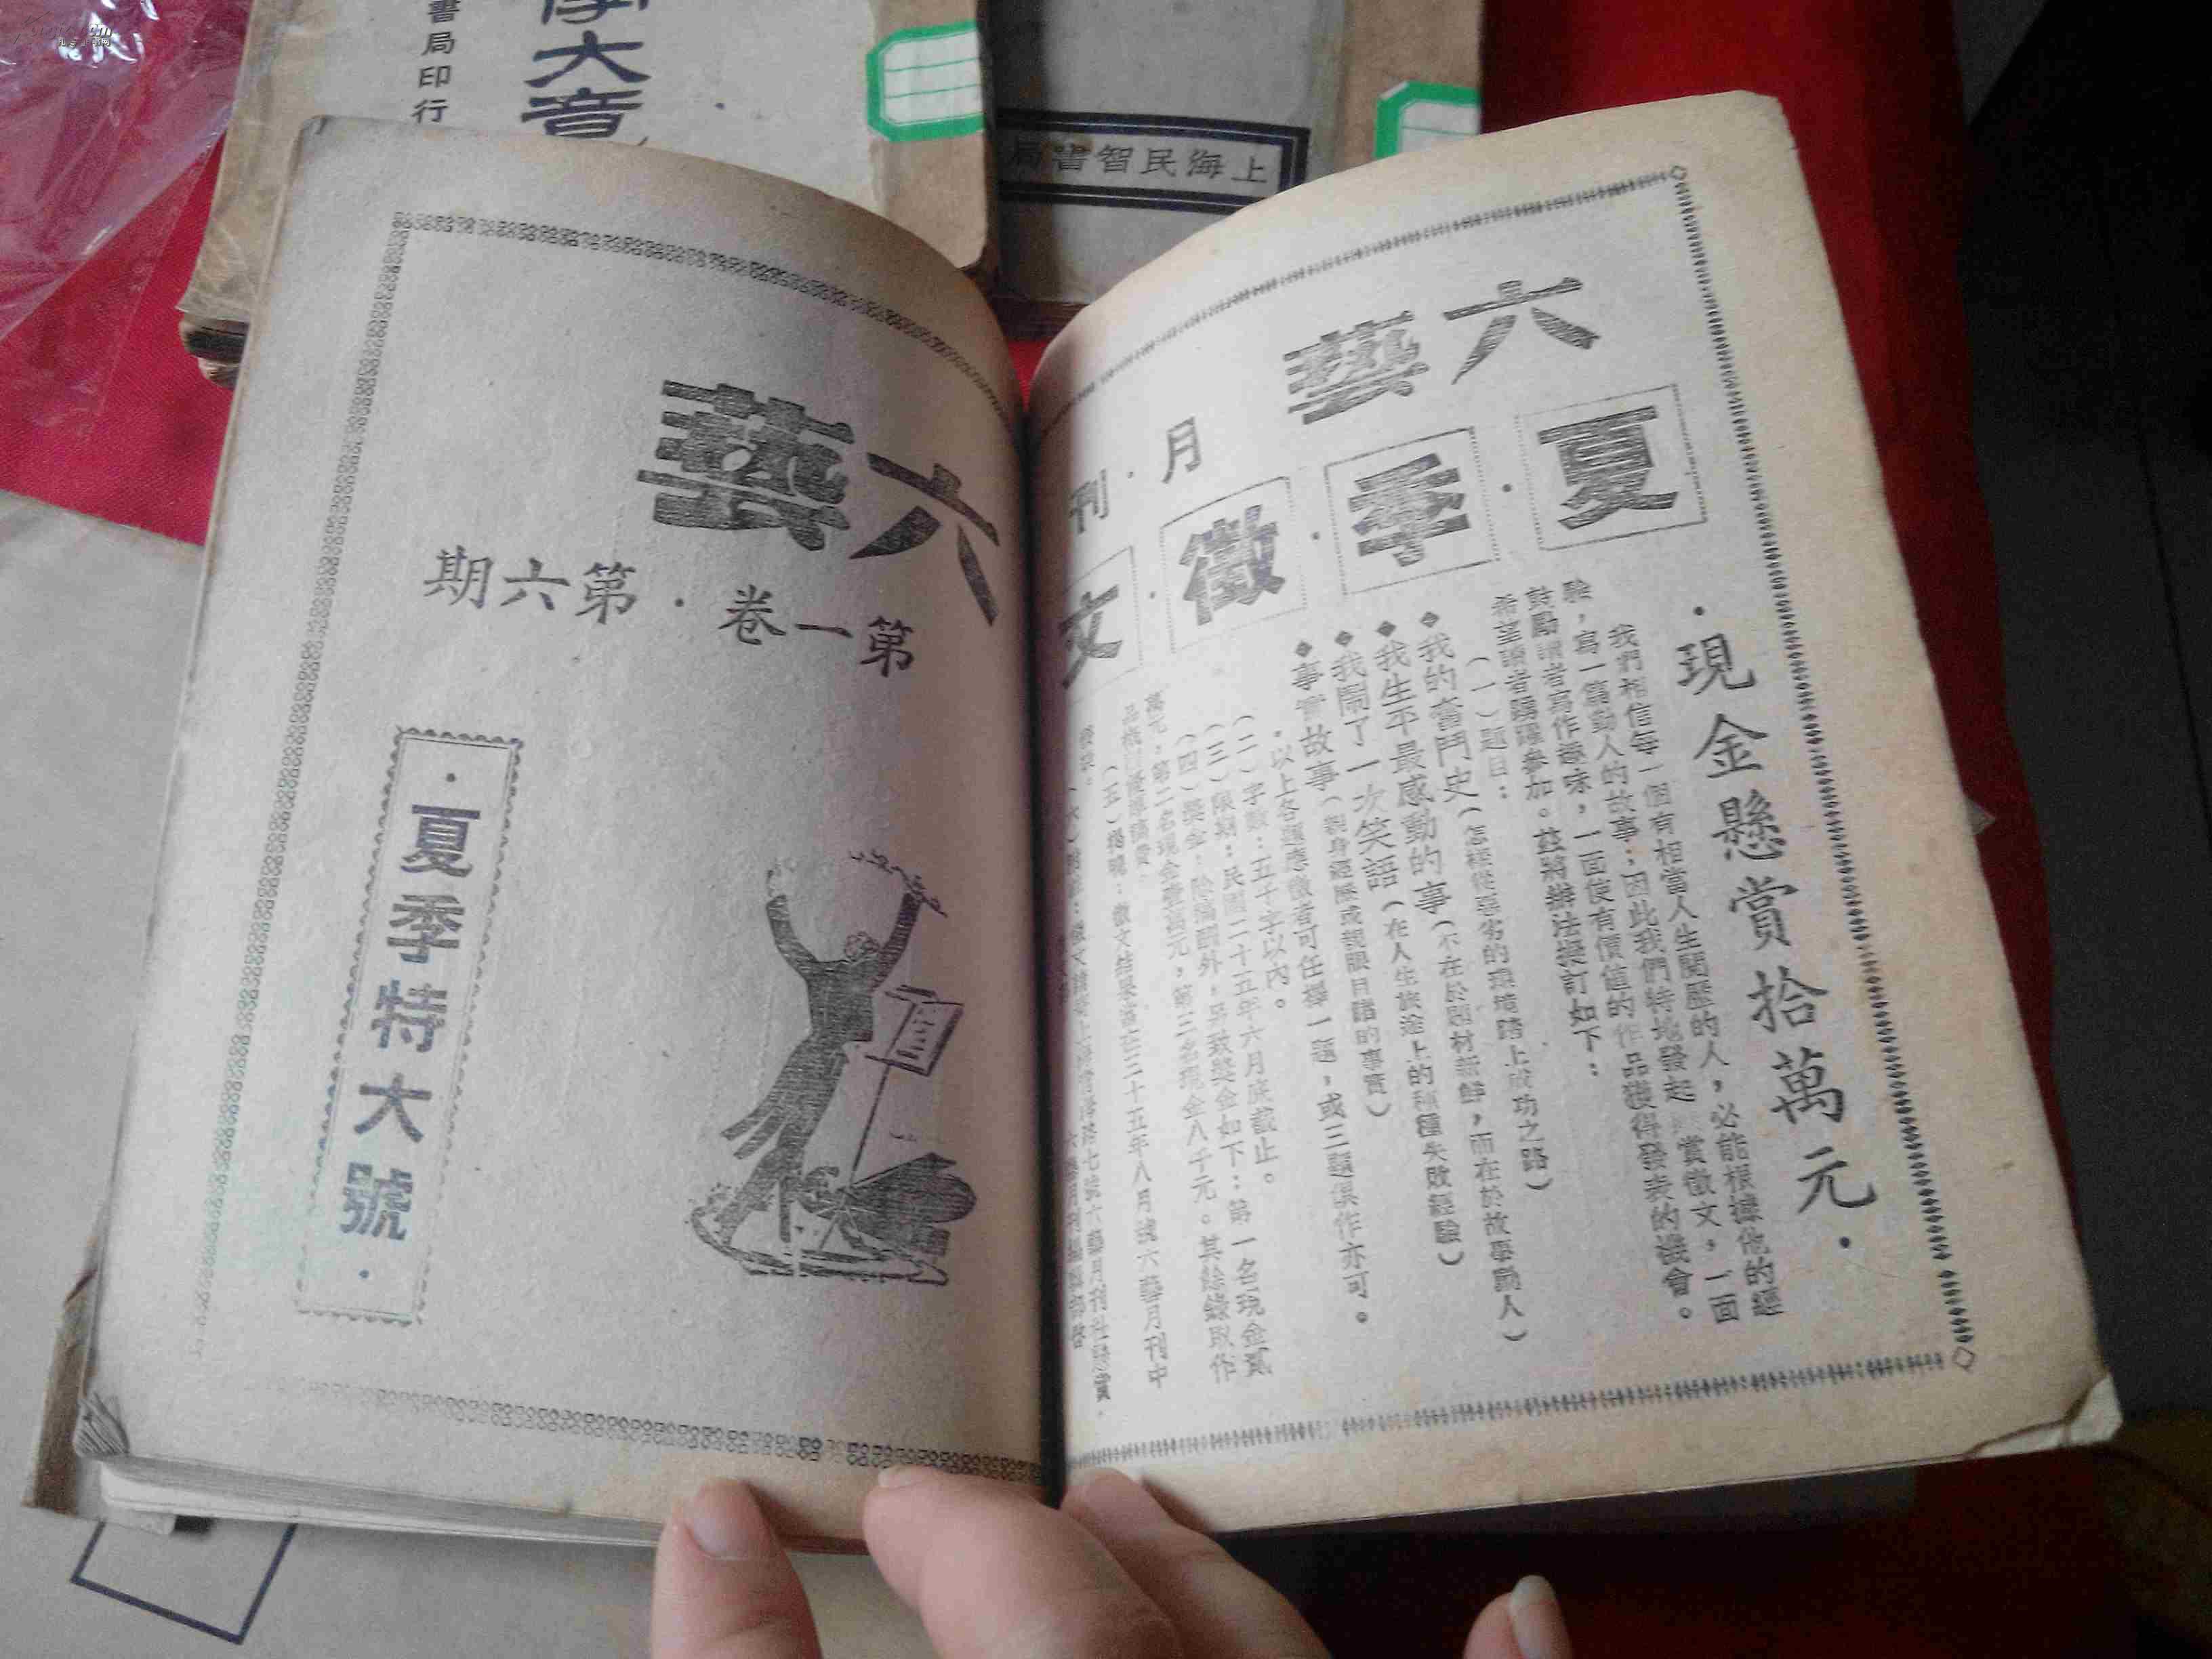 書局印行
大音
上海民智書局
六藝
月·刊
夏·季·徵·文
·現金懸賞拾萬元·
我們相信每一個有相當人生閱歷的人，必能根據他的經
驗，寫一篇動人的故事；因此我們特地發起 賞徵文，一面
鼓勵讀者寫作趣味，一面使有價值的作品獲得發表的機會。
希望讀者踴躍參加。茲將辦法擬訂如下：
（一）題目：
◆我的奮鬥史（怎樣從惡劣的環境踏上成功之路）
◆我生平最感動的事（不在於題材新鮮，而在於故事動人）
◆我鬧了一次笑話（在人生旅途上的種種失敗經驗）
◆事實故事（親身經歷或親眼目睹的事實）
·以上各題應徵者可任擇一題，或三題俱作亦可。
（二）字數：五千字以內。
（三）限期：民國二十五年六月底截止。
（四）獎金：除稿酬外，另致獎金如下：第一名現金貳
萬元，第二名現金壹萬元，第三名現金八千元。其餘錄取作
品概 稿費。
（五）揭曉：徵文結果當在三十五年八月號六藝月刊中
發表。
六藝
第一卷·第六期
·夏季特大號·